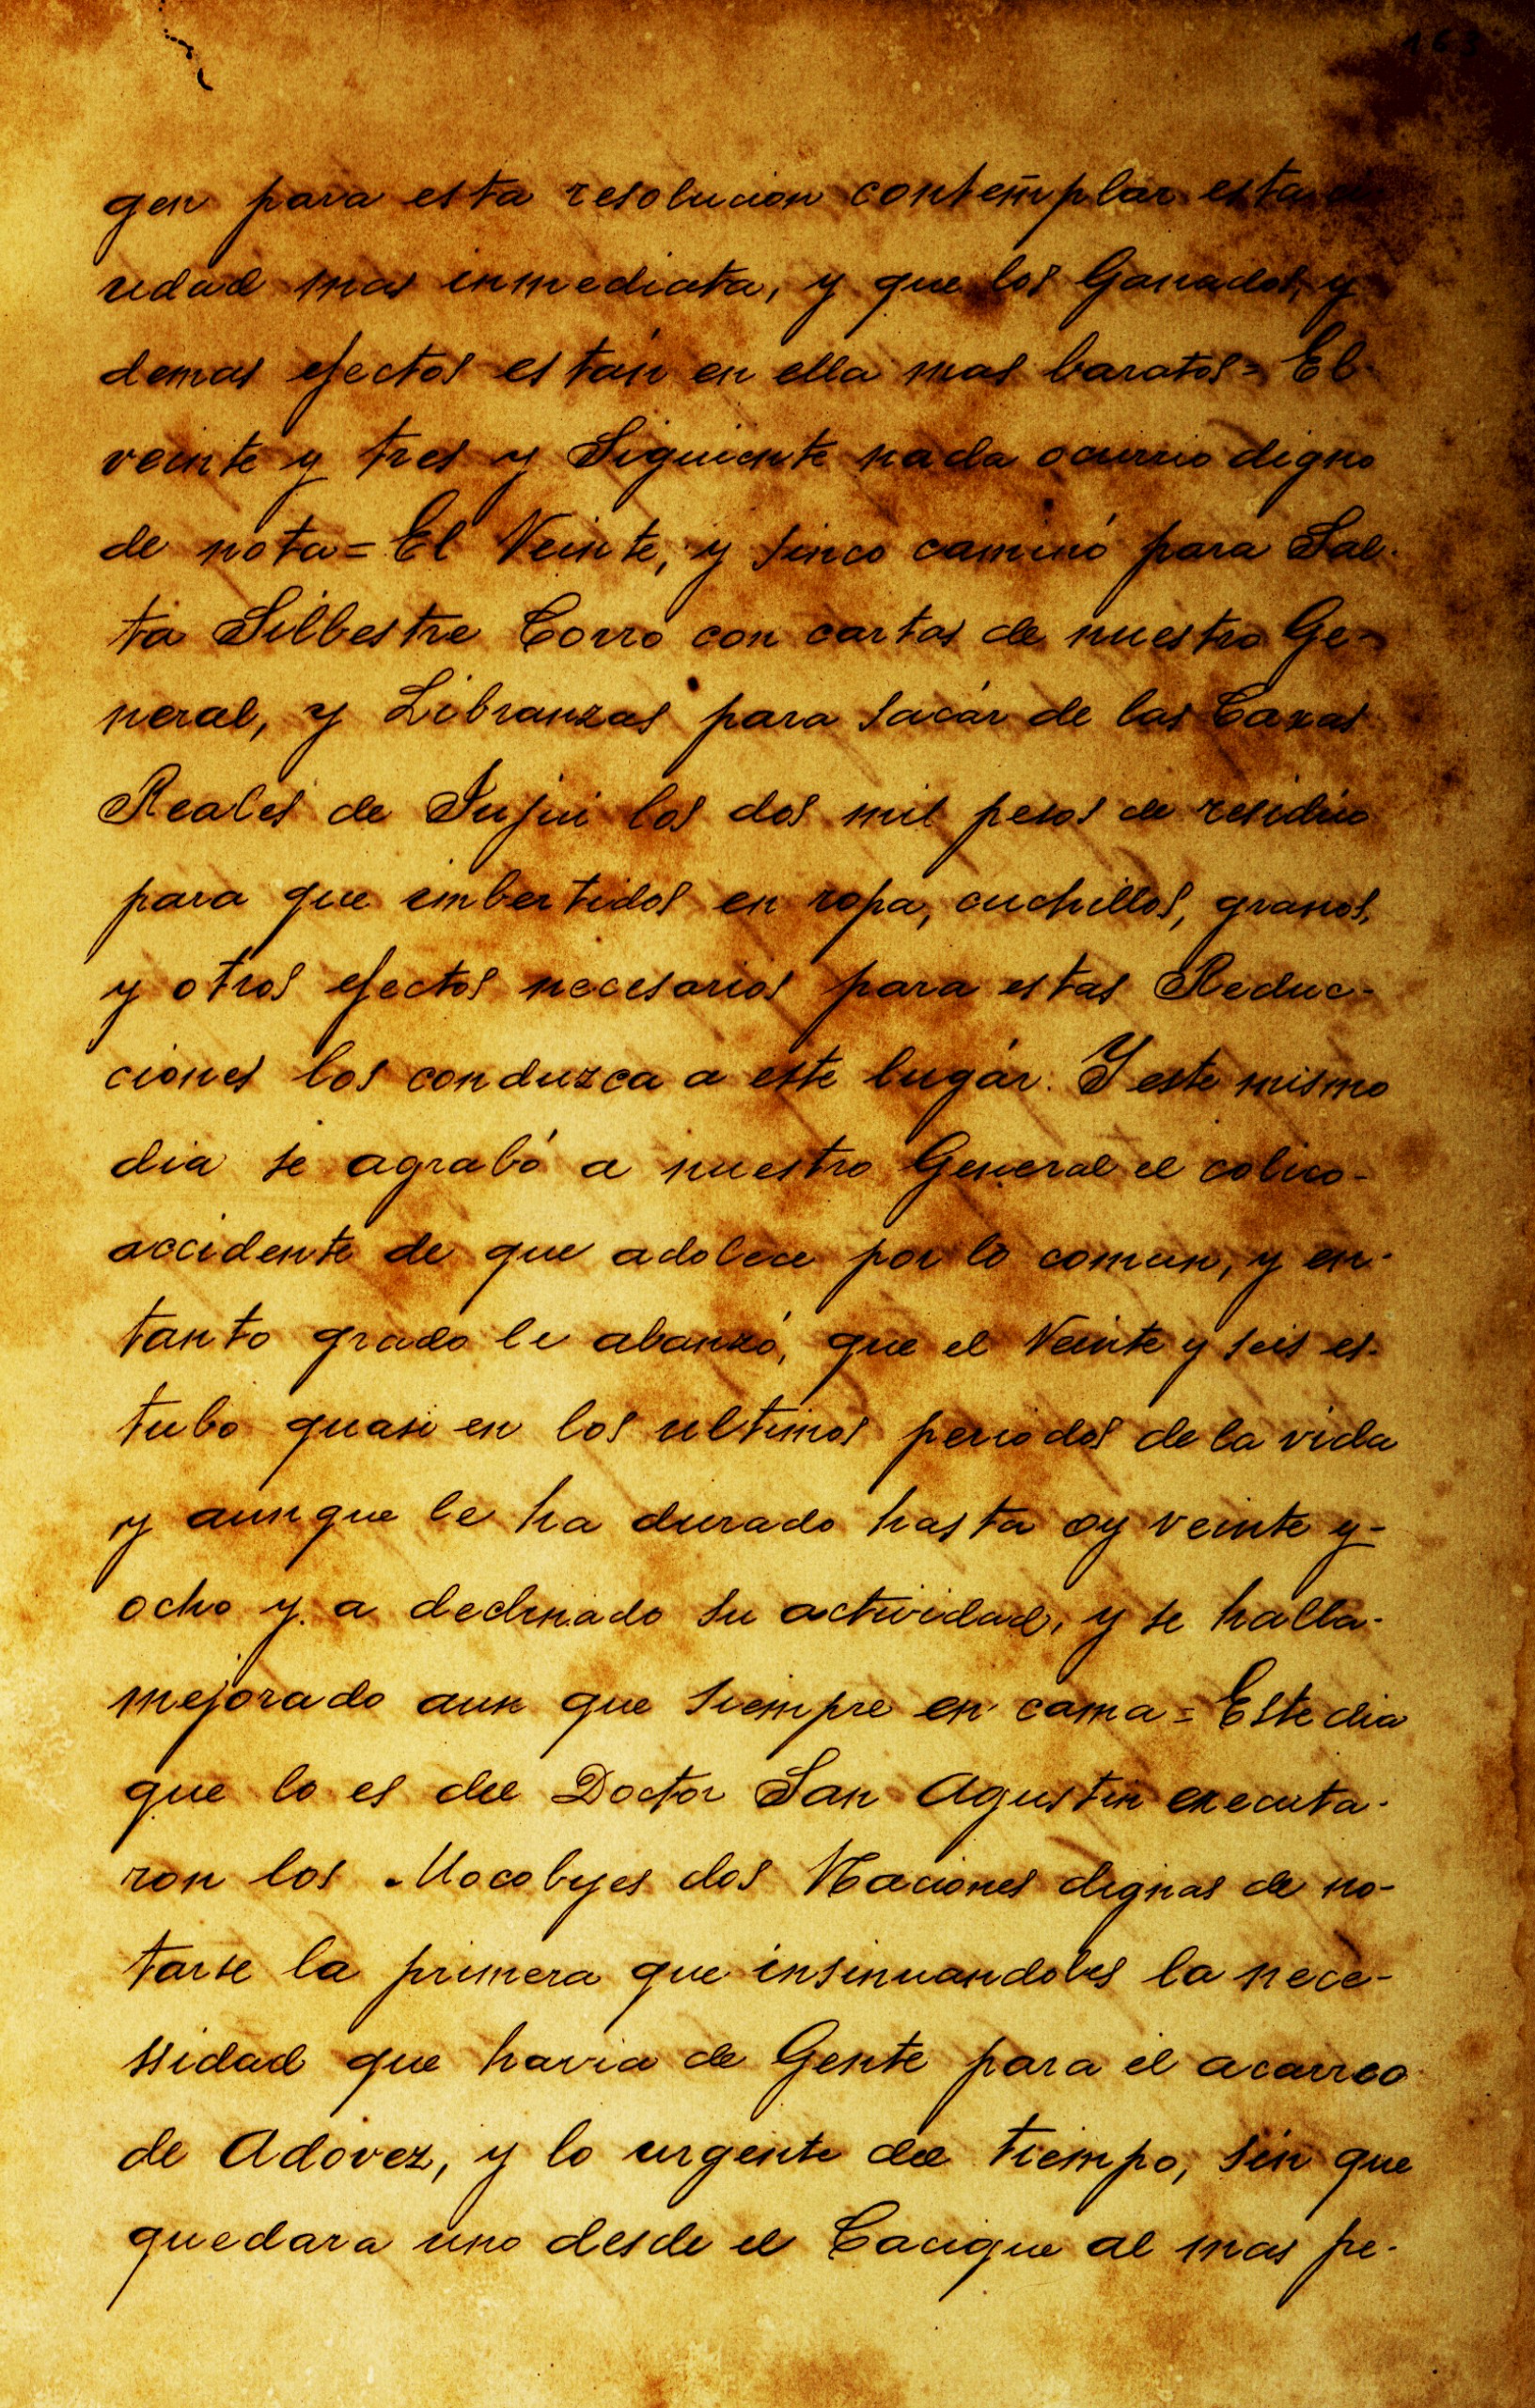 gen para esta resolucion contemplar esta
cidad mas inmediata, y que los Ganados, y
demas efectos están en ella mas baratos= El
veinte y tres y Siguiente nada ocurrio digno
de nota= El Veinte, y sinco caminó para Sal-
ta Silbestre Corro con cartas de nuestro Ge-
neral, y Libranzas para sacár de las Caxas
Reales de Jujui los dos mil pesos de residuo
para que imbertidos en ropa, cuchillos, granos,
y otros efectos necesarios para estas Reduc-
ciones los conduzca a este lugár. Y este mismo
dia se agrabó a nuestro General el colico-
accidente de que adolece por lo comun, y en-
tanto grado le abanzó, que el Veinte y seis es-
tubo quasi en los ultimos periodos de la vida
y aunque le ha durado hasta oy veinte y-
ocho y a declinado su actividad, y se halla-
mejorado aun que siempre en cama= Este dia
que lo es del Doctor San Agustin executa-
ron los Mocobyes dos Naciones dignas de no-
tarse la primera que insinuandoles la nece-
ssidad que havia de Gente para el acarreo
de Adovez, y lo urgente del tiempo, sin que
quedara uno desde el Cacique al mas pe-